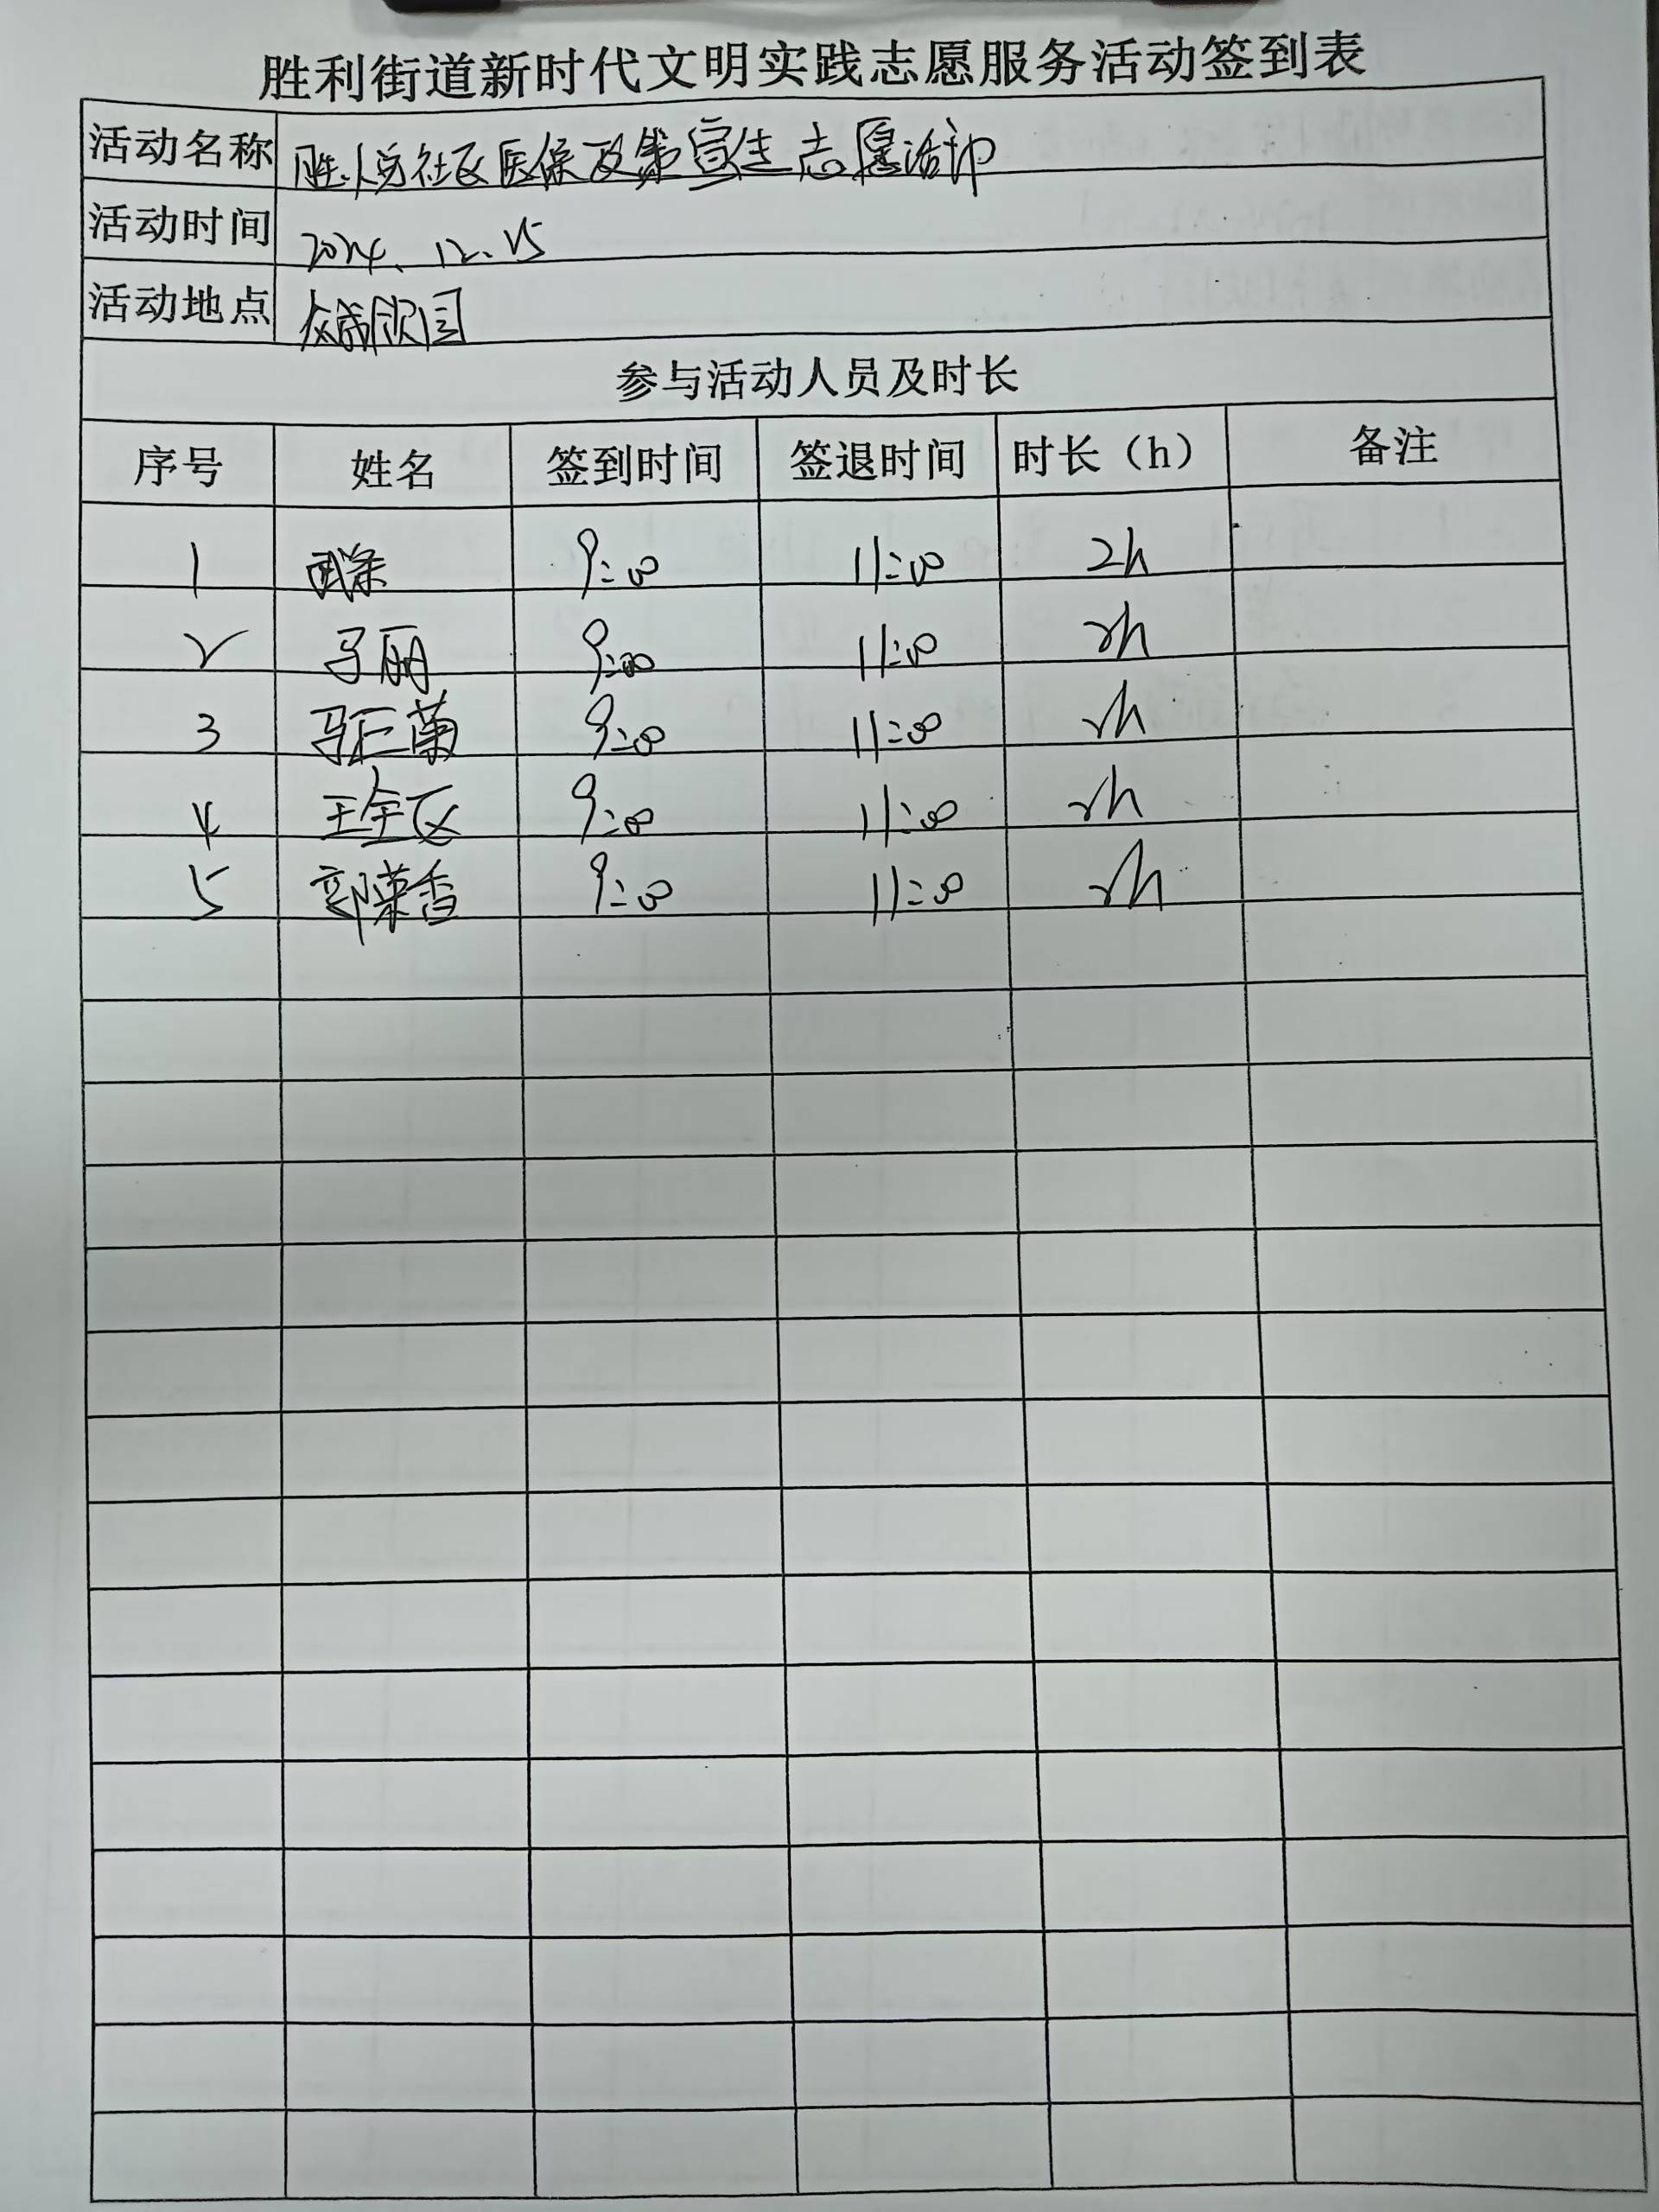 胜利街道新时代文明实践志愿服务活动签到表
活动名称 社区医保政策宣传志愿活动
活动时间 2024.12.25
活动地点
参与活动人员及时长
序号 姓名 签到时间 签退时间 时长（h） 备注
1 9:00 11:00 2h
2 马丽 9:00 11:00 2h
3 9:00 11:00 2h
4 9:00 11:00 2h
5 郭荣香 9:00 11:00 2h